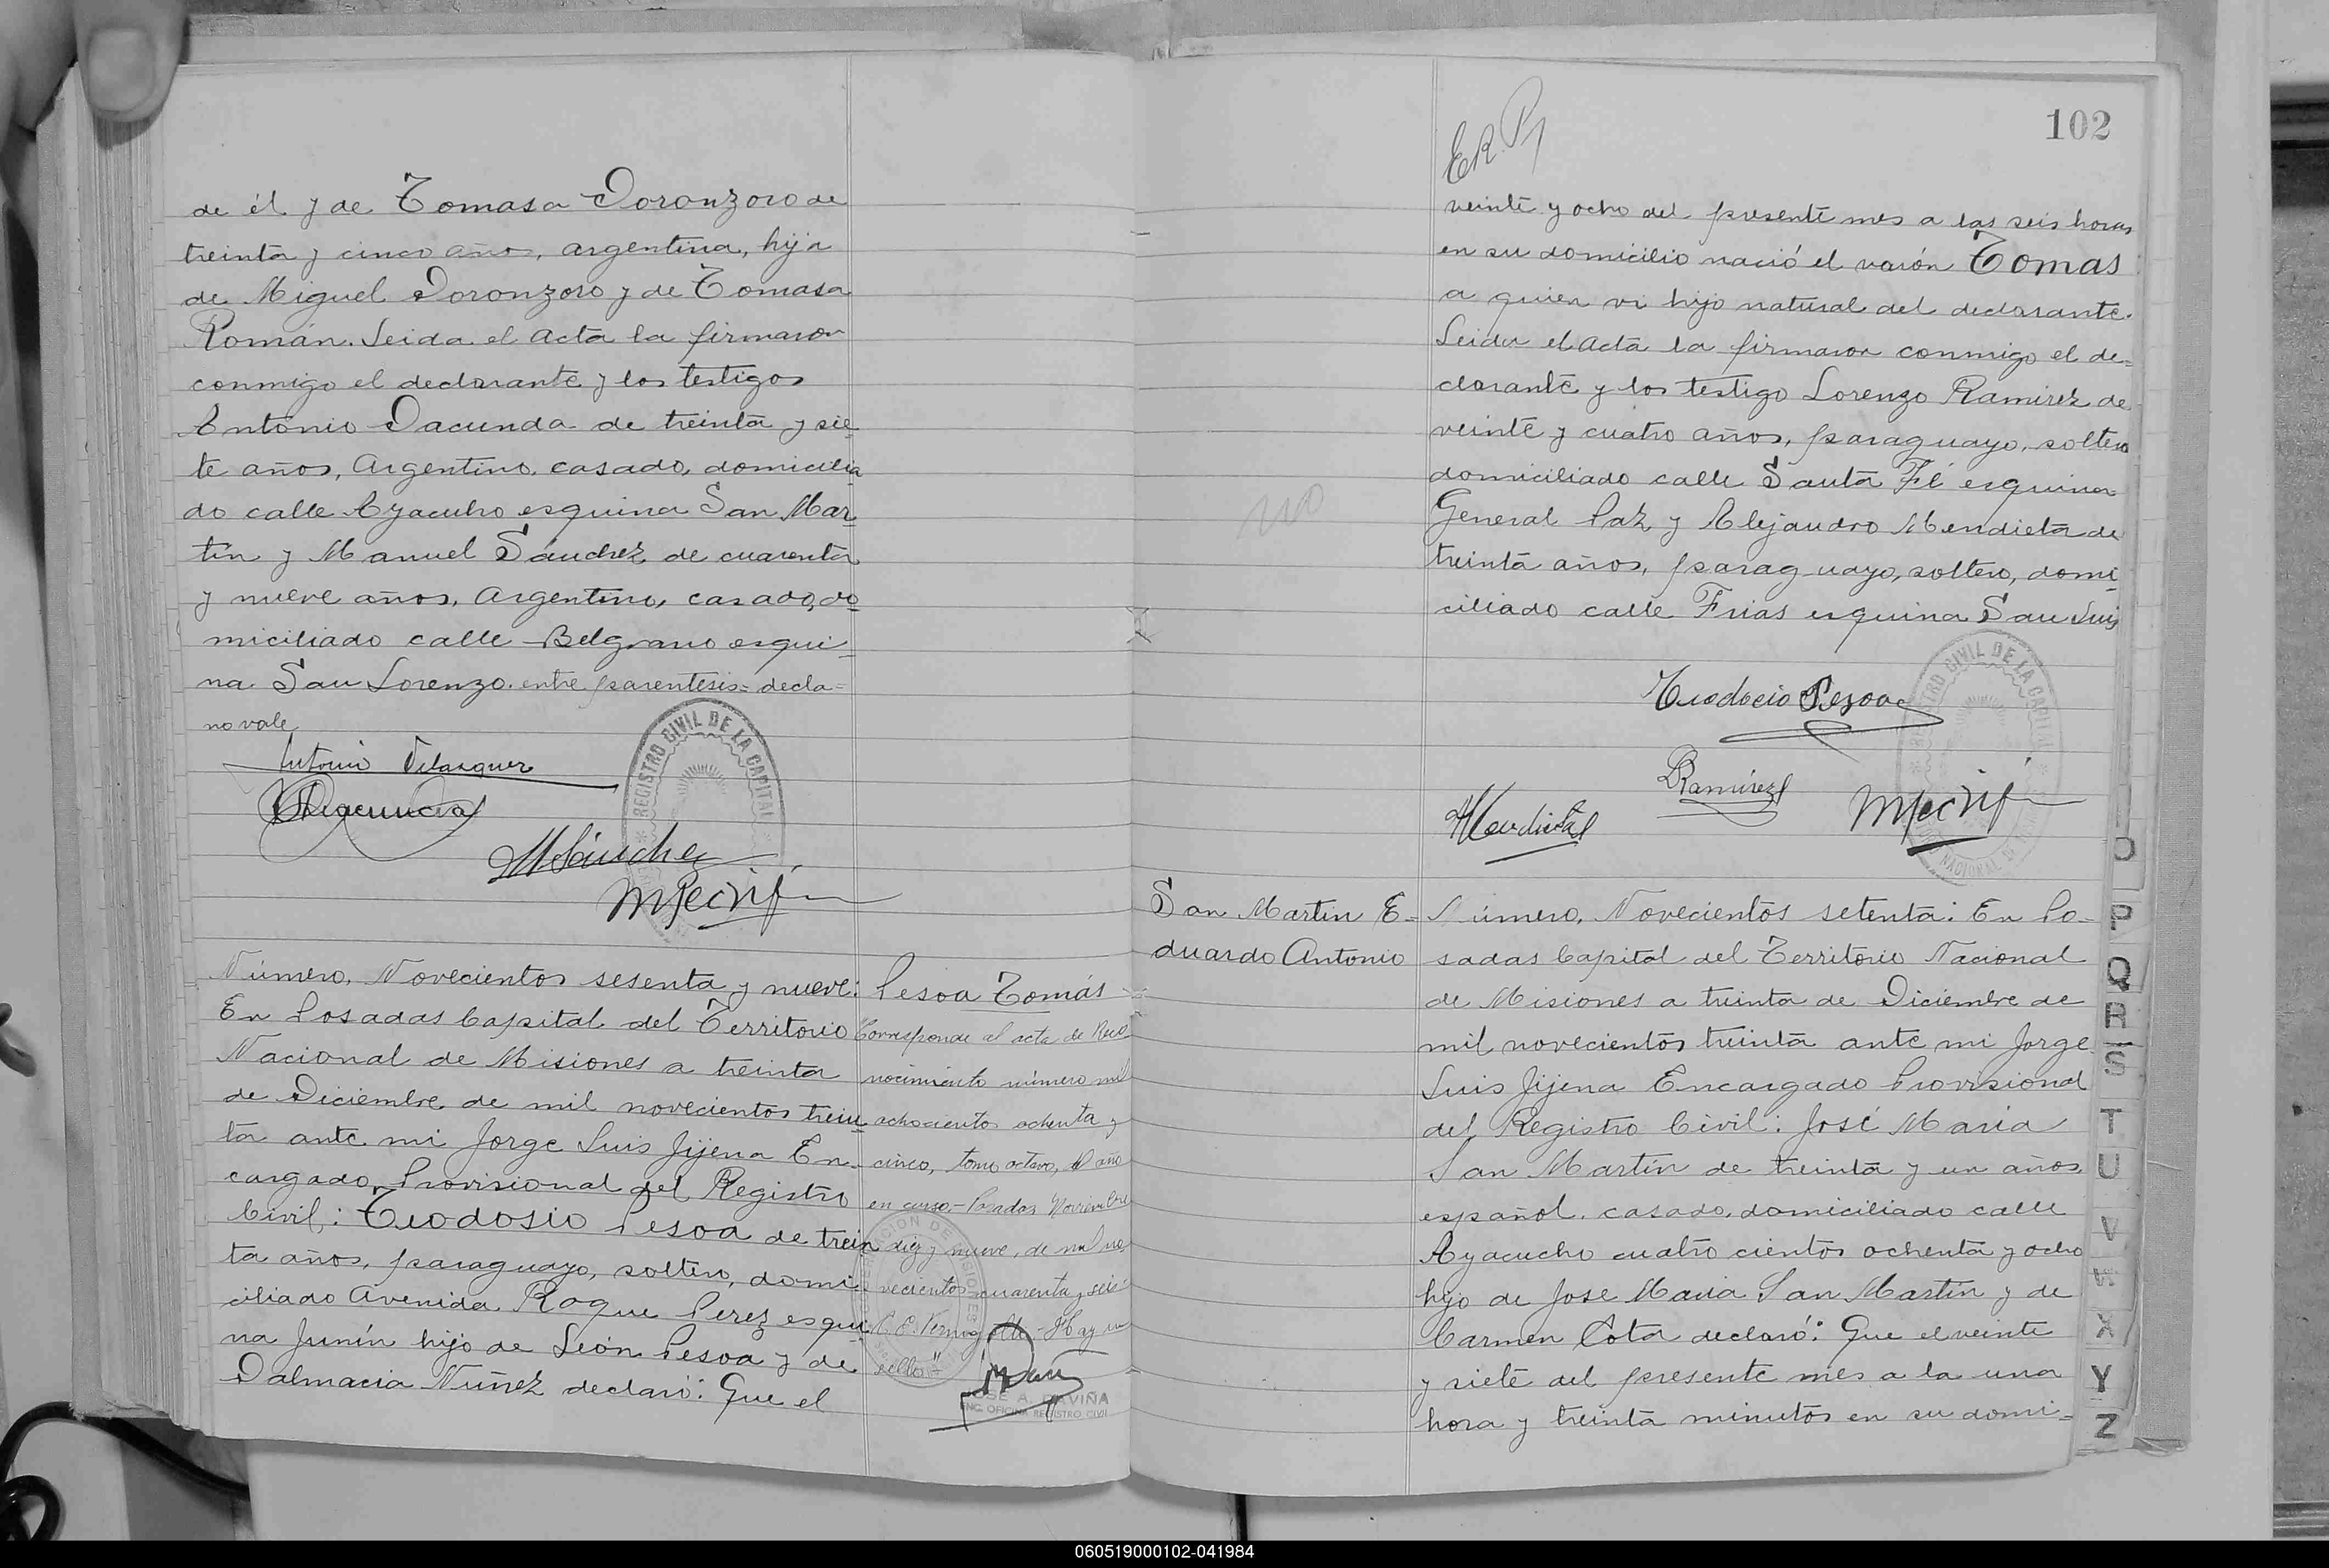 de él y de Tomasa Doronzoro de
treinta y cinco años, argentina, hija
de Miguel Doronzoro y de Tomasa
Román. Leida el acta la firmaron
conmigo el declarante y los testigos
Antonio Dacunda de treinta y sie
te años, Argentino, casado, domicilia
do calle Ayacucho esquina San Mar
tin y Manuel Sánchez de cuarenta
y nueve años, Argentino, casado, do
miciliado calle Belgrano esqui
na San Lorenzo. entre parentesis= decla=
no vale
Antonio Velasquez
MSánchez
REGISTRO CIVIL DE LA CAPITAL
Número, Novecientos sesenta y nueve:
En Posadas Capital del Territorio
Nacional de Misiones a treinta
de Diciembre de mil novecientos trein
ta ante mi Jorge Luis Jijena En-
cargado Provisional del Registro
Civil: Teodosio Pesoa de trein
ta años, paraguayo, soltero, domi
ciliado Avenida Roque Perez esqui
na Junín hijo de León Pesoa y de
Dalmacia Nuñez declaró: Que el
Pesoa Tomás
"Corresponde al acta de Reco
nocimiento número mil
ochocientos ochenta y
cinco, tomo octavo, del año
en curso.- Posadas Noviembre
diez y nueve, de mil no
vecientos cuarenta y seis
Hay un
sello"
JOSE A. DAVIÑA
ENC. OFICINA REGISTRO CIVIL
102
E.R.P
veinte y ocho del presente mes a las seis horas
en su domicilio nació el varón Tomas
a quien vi hijo natural del declarante.
Leida el acta la firmaron conmigo el de=
clarante y los testigo Lorenzo Ramirez de
veinte y cuatro años, paraguayo, soltero
domiciliado calle Santa Fé esquina
General Paz y Alejandro Mendieta de
treinta años, paraguayo, soltero, domi
ciliado calle Frias esquina San Luis
no
Teodocio Pesoa
Ramirez
AMendieta
REGISTRO CIVIL DE LA CAPITAL
San Martin E-
duardo Antonio
Número, Novecientos setenta: En Po-
sadas Capital del Territorio Nacional
de Misiones a treinta de Diciembre de
mil novecientos treinta ante mi Jorge
Luis Jijena Encargado Provisional
del Registro Civil: José Maria
San Martín de treinta y un años,
español, casado, domiciliado calle
Ayacucho cuatro cientos ochenta y ocho
hijo de Jose Maria San Martín y de
Carmen Cota declaró: Que el veinte
y siete del presente mes a la una
hora y treinta minutos en su domi=
O
P
Q
R
S
T
U
V
W
X
Y
Z
060519000102-041984